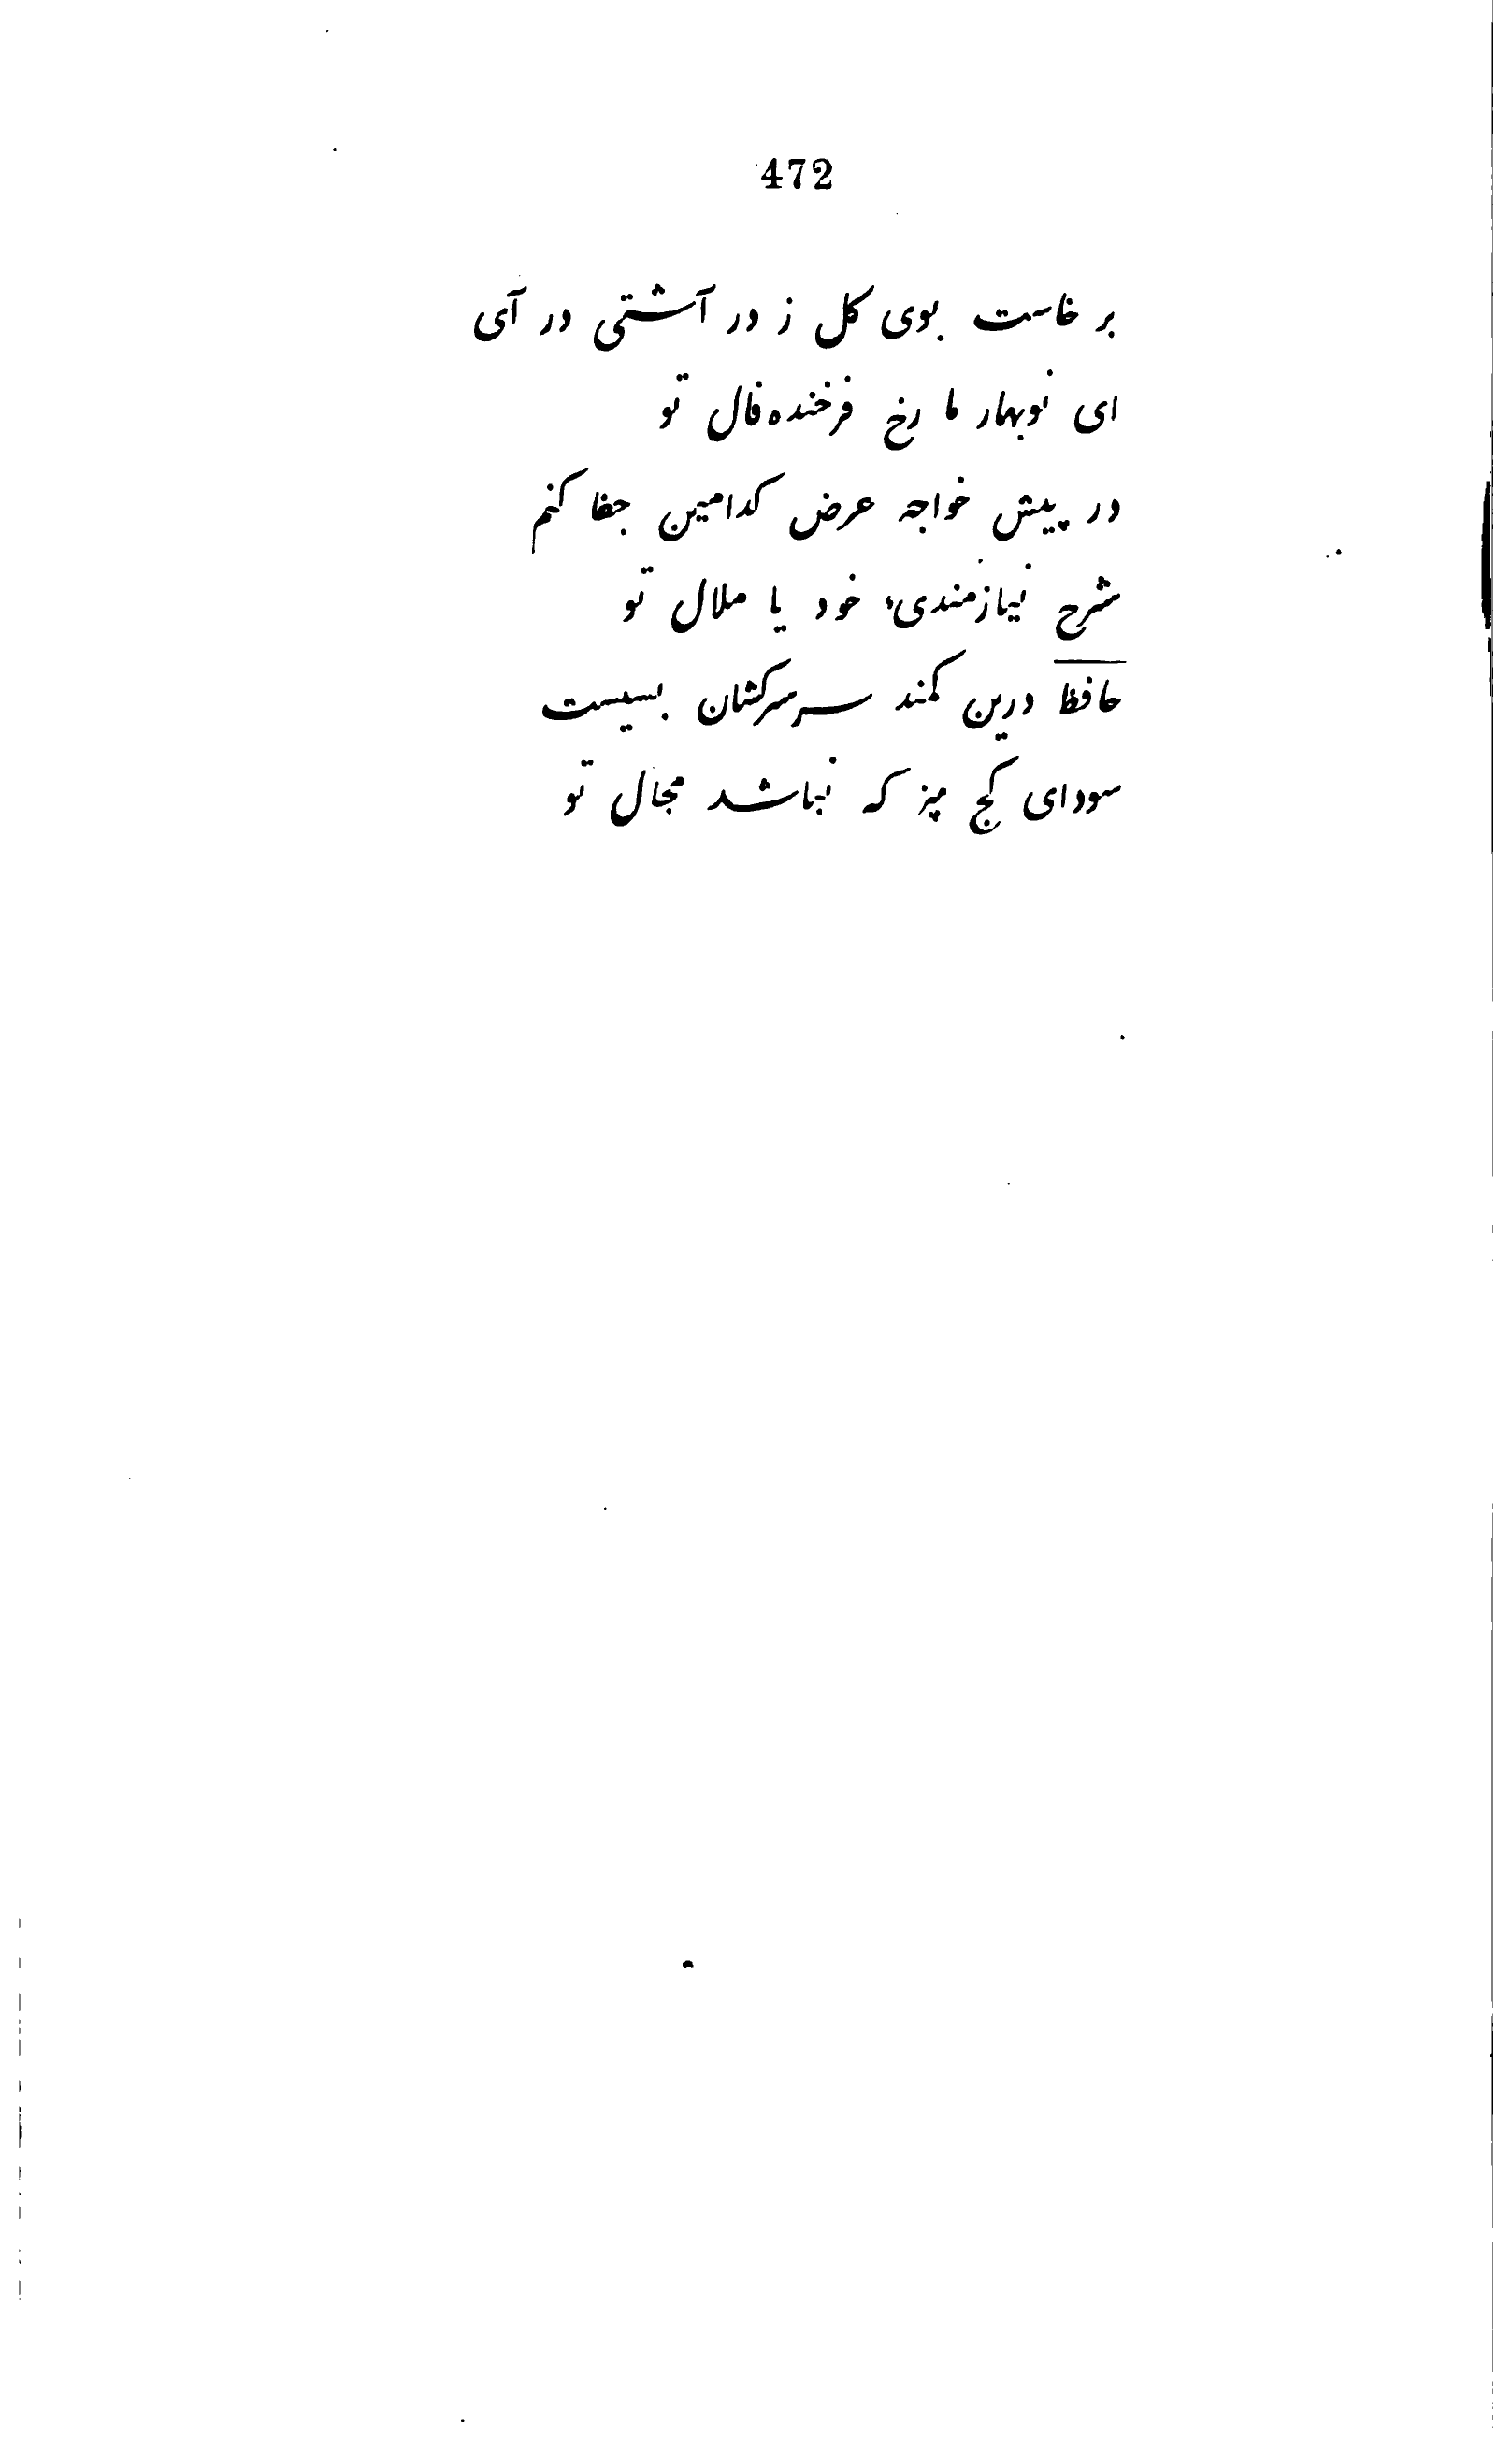 472
بر خاست بوی کل ز در آشتی در آی
ای نوبهار ما رخ فرخنده فال تو
در پیش خواجه عرض کدامین جفا کنم
شرح نیازمندیء خود یا ملال تو
حافظ درین کمند سر سرکشان بسیست
سودای کج مپز که نباشد مجال تو